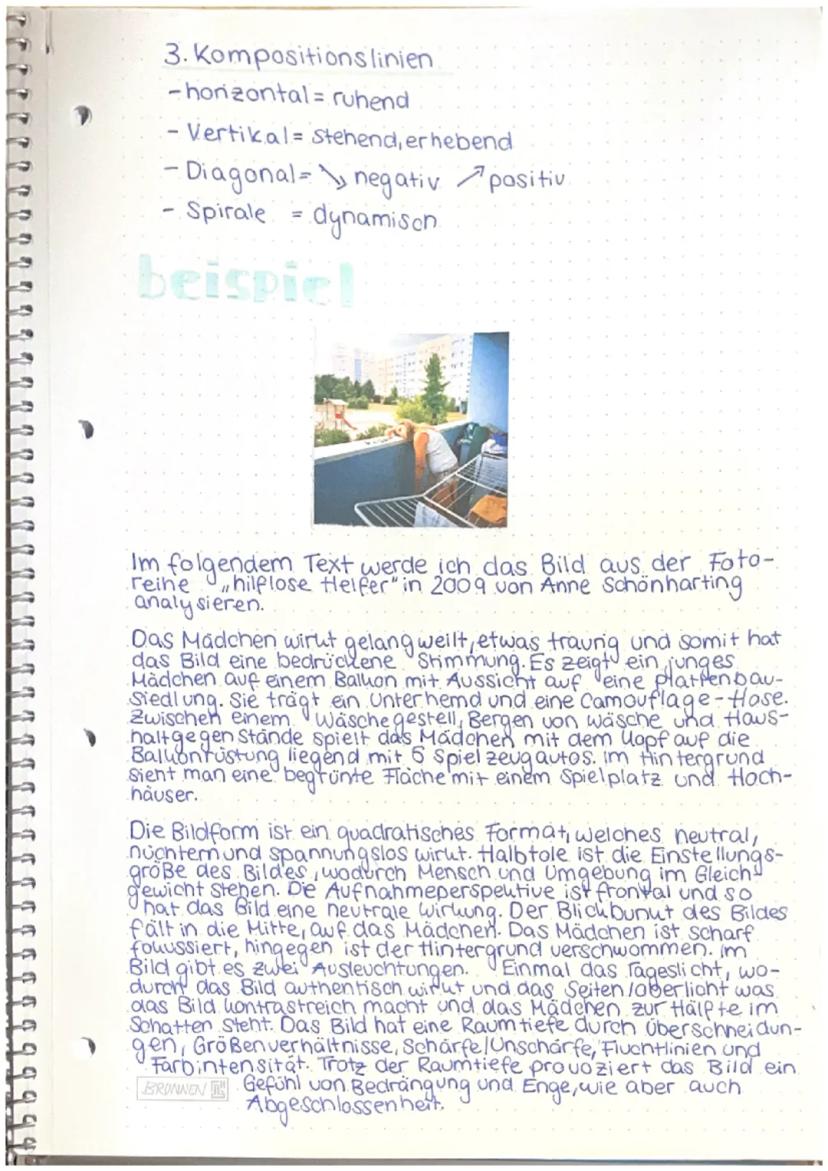 3. Kompositionslinien
- horizontal = ruhend
- Vertikal = stehend, erhebend
- Diagonal = ↘ negativ ↗ positiv
- Spirale = dynamisch
beispiel
Im folgendem Text werde ich das Bild aus der Foto-
reihe „hilflose Helfer" in 2009 von Anne Schönharting
analysieren.
Das Mädchen wirkt gelangweilt, etwas traurig und somit hat
das Bild eine bedrückene Stimmung. Es zeigt ein junges
Mädchen auf einem Balkon mit Aussicht auf eine plattenbau-
siedlung. Sie trägt ein Unterhemd und eine Camouflage-Hose.
Zwischen einem Wäschegestell, Bergen von wäsche und Haus-
haltgegenstände spielt das Mädchen mit dem Kopf auf die
Balkonrüstung liegend mit 5 Spielzeugautos. im Hintergrund
sieht man eine begrünte Fläche mit einem Spielplatz und Hoch-
häuser.
Die Bildform ist ein quadratisches Format, welches neutral,
nüchtern und spannungslos wirkt. Halbtole ist die Einstellungs-
größe des Bildes, wodurch Mensch und Umgebung im Gleich
gewicht stehen. Die Aufnahmeperspektive ist frontal und so
hat das Bild eine neutrale Wirkung. Der Blickbunkt des Bildes
fält in die Mitte, auf das Mädchen. Das Mädchen ist scharf
fokussiert, hingegen ist der Hintergrund verschwommen. im
Bild gibt es zwei Ausleuchtungen. Einmal das Tageslicht, wo-
durch das Bild authentisch wirkt und das Seiten/oberlicht was
das Bild kontrastreich macht und das Mädchen zur Hälfte im
Schatten steht. Das Bild hat eine Raumtiefe durch überschneidun-
gen, Größenverhältnisse, Schärfe/Unschärfe, Fluchtlinien und
Farbintensität. Trotz der Raumtiefe provoziert das Bild ein
BRUNNEN Gefühl von Bedrängung und Enge, wie aber auch
Abgeschlossenheit.